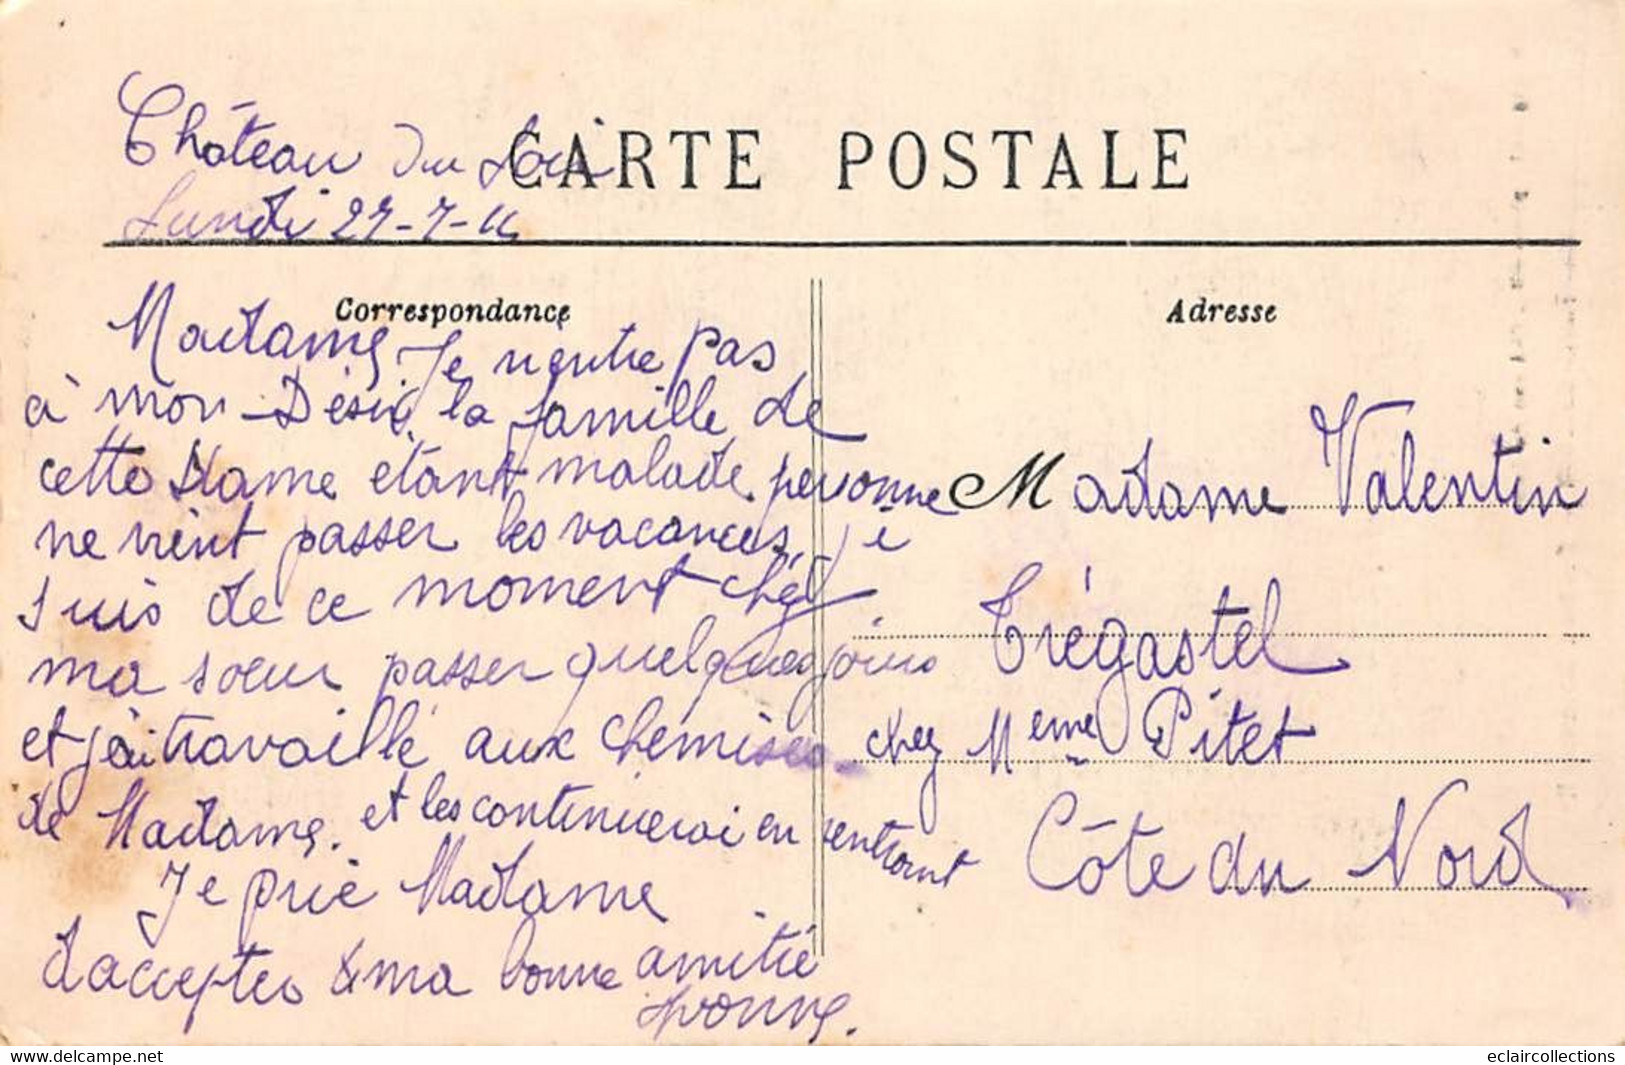 Château du Loir
CARTE POSTALE
Lundi 27-7-14
Correspondance
Madame, Je rentre pas
à mon Désir, la famille de
cette Dame étant malade, personne
ne vient passer les vacances, je
suis de ce moment chez
ma soeur passer quelques jours
et j'ai travaillé aux chemises
de Madame. et les continuerai en rentrant
Je prie Madame
d'acceptes ma bonne amitié
Yvonne.
Adresse
Madame Valentin
Trégastel
chez Meme Pitet
Côte du Nord
www.delcampe.net
eclaircollections